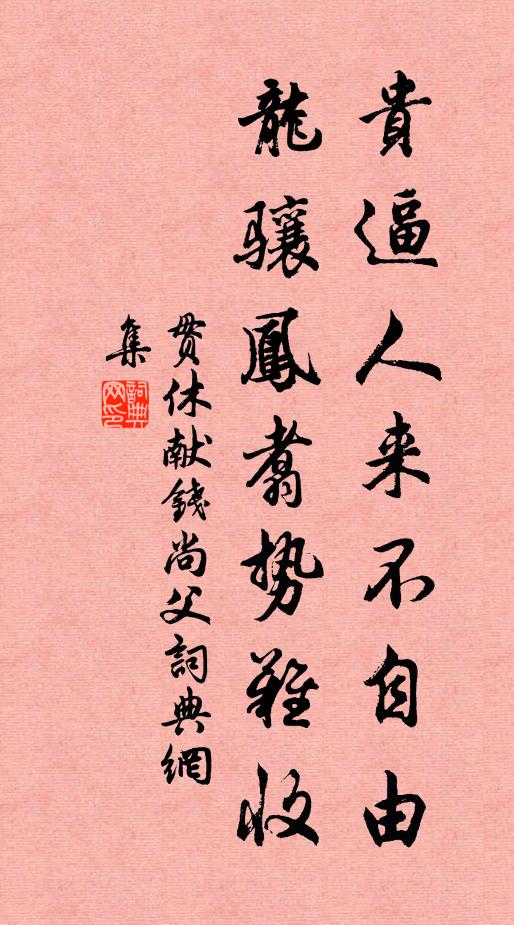 貴逼人来不自由
龍骧鳳翥势難收
贯休献錢尚父詞典網
集
詞典
网印